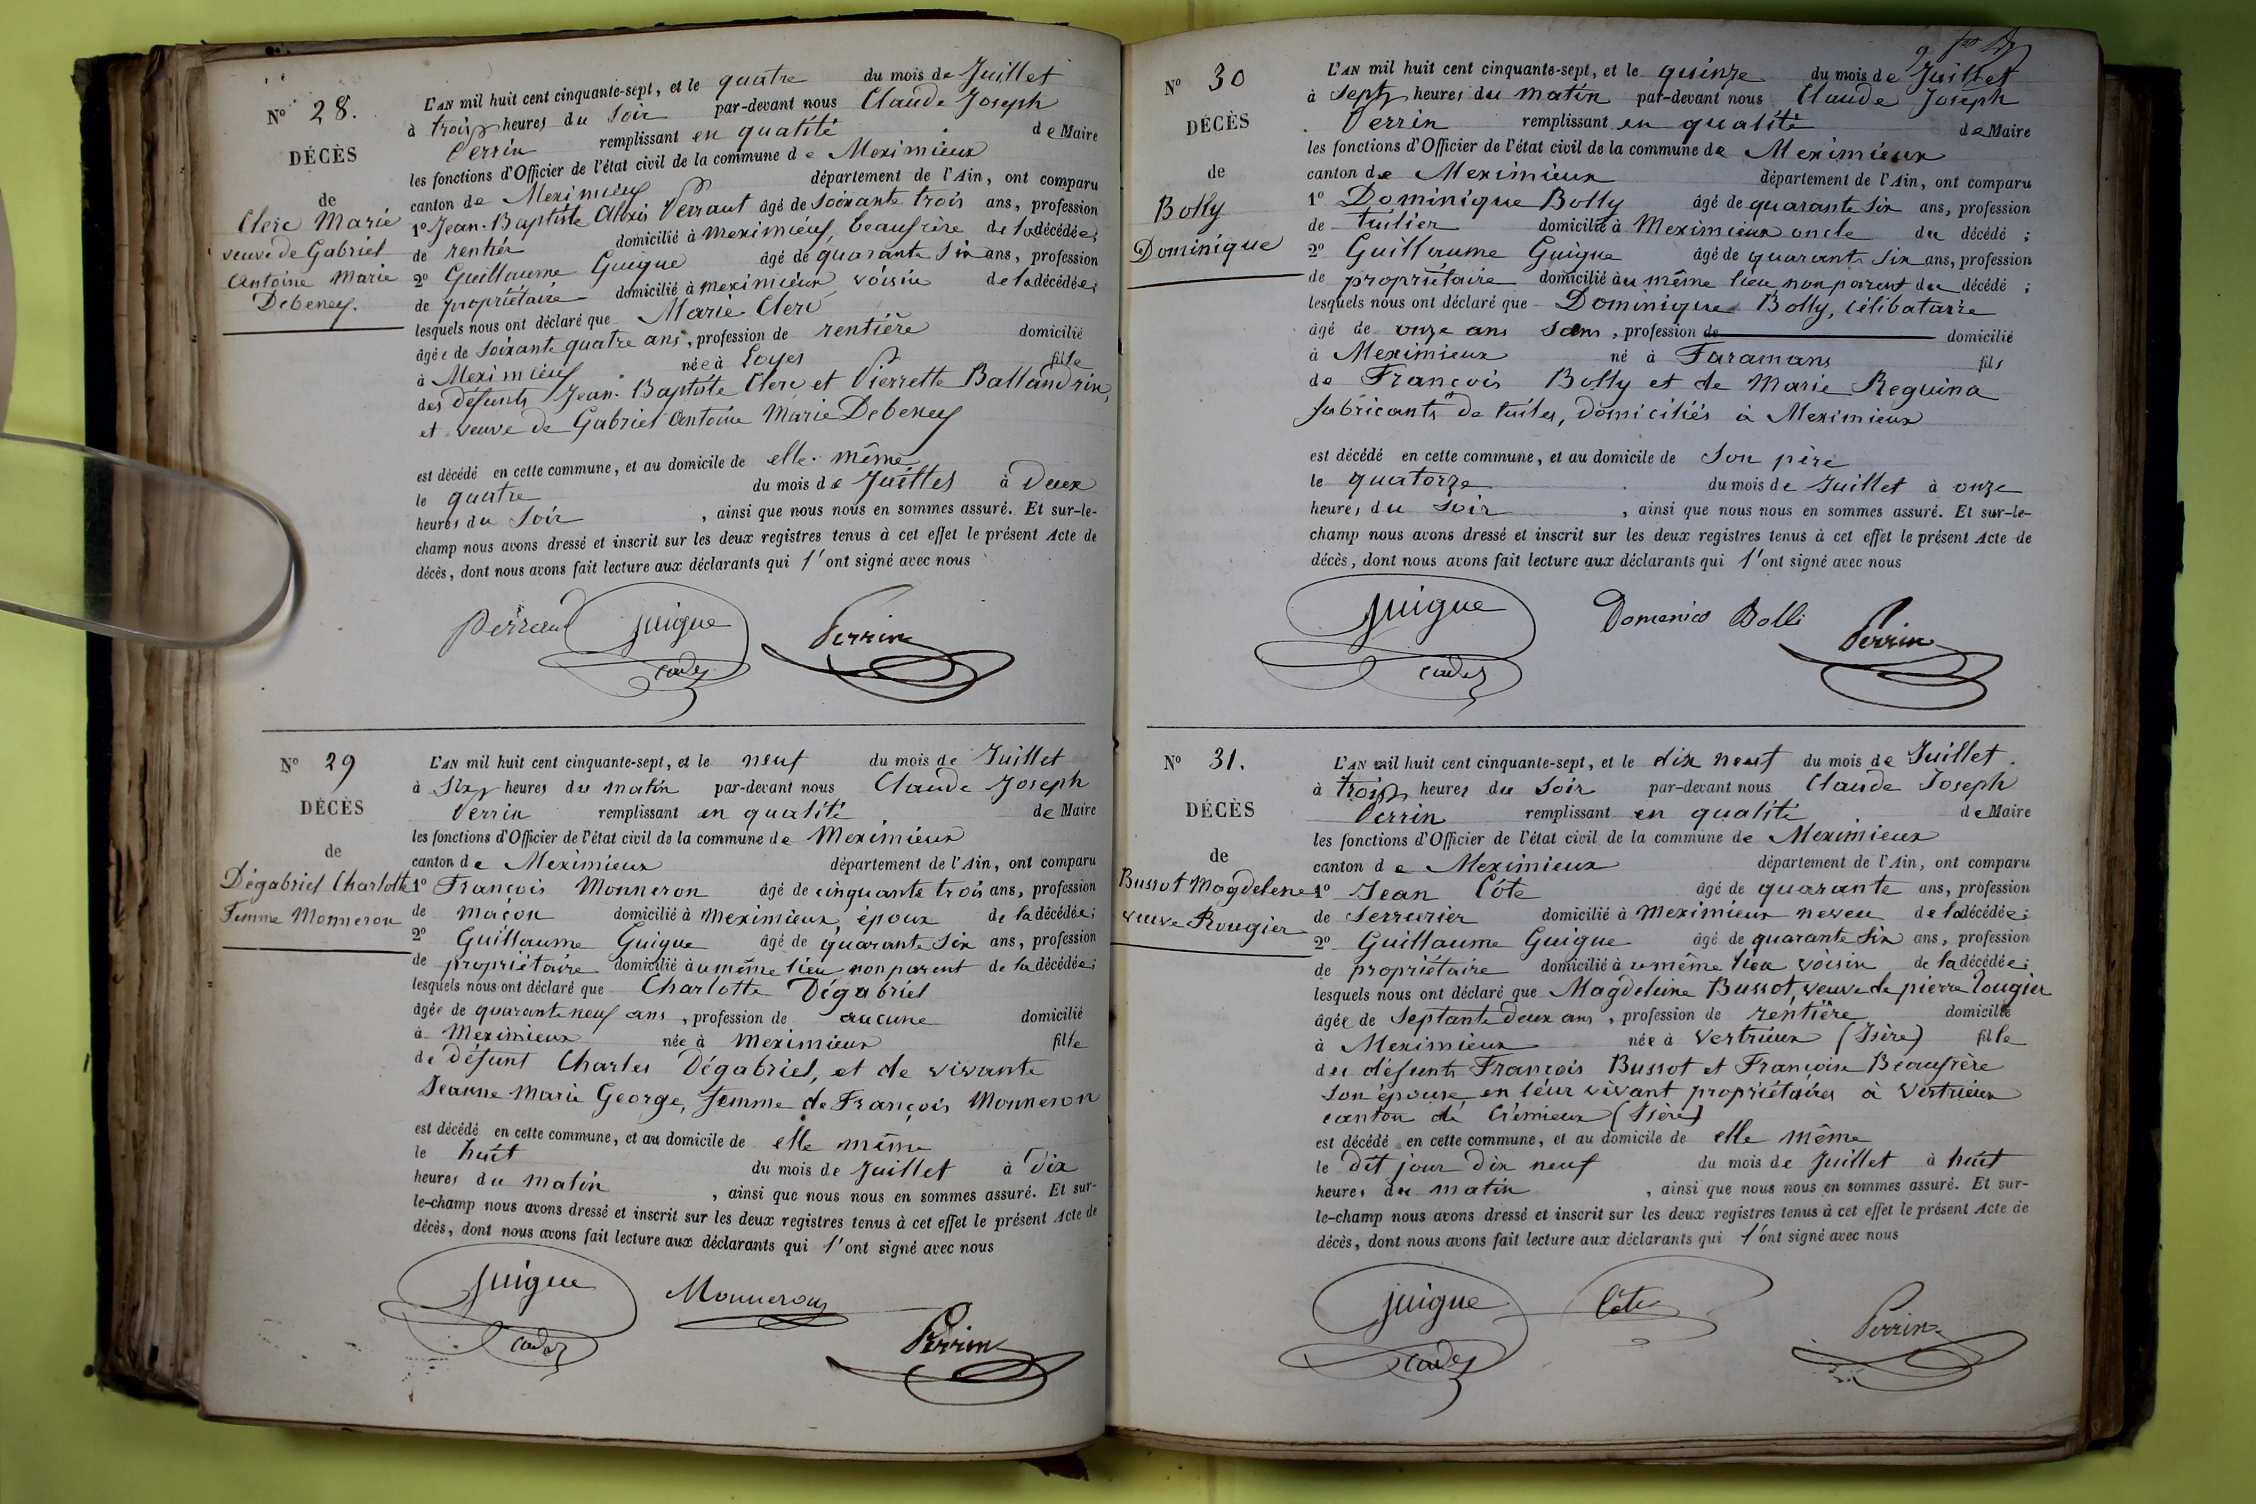 N° 28.
DÉCÈS
de
Clerc Marie
veuve de Gabriel
Antoine Marie
Debeney.
L'AN mil huit cent cinquante-sept, et le quatre du mois de Juillet
à trois heures du soir par-devant nous Claude Joseph
Perrin remplissant en qualité de Maire
les fonctions d'Officier de l'état civil de la commune de Meximieux
canton de Meximieux département de l'Ain, ont comparu
1° Jean-Baptiste Alexis Perraut âgé de soixante trois ans, profession
de rentier domicilié à Meximieux, beaufrère de la décédée;
2° Guillaume Guigue âgé de quarante six ans, profession
de propriétaire domicilié à Meximieux, voisin de la décédée;
lesquels nous ont déclaré que Marie Clerc
âgée de soixante quatre ans, profession de rentière domicilié
à Meximieux née à Loyes fille
des défunts Jean-Baptiste Clerc et Pierrette Ballandrin,
et veuve de Gabriel Antoine Marie Debeney
est décédé en cette commune, et au domicile de elle-même
le quatre du mois de Juillet à Deux
heures du soir, ainsi que nous nous en sommes assuré. Et sur-le-
champ nous avons dressé et inscrit sur les deux registres tenus à cet effet le présent Acte de
décès, dont nous avons fait lecture aux déclarants qui l'ont signé avec nous
Perraud Guigue Perrin
cadet
N° 29
DÉCÈS
de
Dégabriel Charlotte
Femme Monneron
L'AN mil huit cent cinquante-sept, et le neuf du mois de Juillet
à Six heures du matin par-devant nous Claude Joseph
Perrin remplissant en qualité de Maire
les fonctions d'Officier de l'état civil de la commune de Meximieux
canton de Meximieux département de l'Ain, ont comparu
1° François Monneron âgé de cinquante trois ans, profession
de maçon domicilié à Meximieux, époux de la décédée;
2° Guillaume Guigue âgé de quarante six ans, profession
de propriétaire domicilié au même lieu, non parent de la décédée;
lesquels nous ont déclaré que Charlotte Dégabriel
âgée de quarante neuf ans, profession de aucune domicilié
à Meximieux née à Meximieux fille
de défunt Charles Dégabriel, et de vivante
Jeanne-Marie George, femme de François Monneron
est décédé en cette commune, et au domicile de elle même
le huit du mois de Juillet à Dix
heures du matin, ainsi que nous nous en sommes assuré. Et sur-
le-champ nous avons dressé et inscrit sur les deux registres tenus à cet effet le présent Acte de
décès, dont nous avons fait lecture aux déclarants qui l'ont signé avec nous
Guigue Monneron
cadet Perrin
N° 30
DÉCÈS
de
Bolly
Dominique
L'AN mil huit cent cinquante-sept, et le quinze du mois de Juillet
à Sept heures du matin par-devant nous Claude Joseph
Perrin remplissant en qualité de Maire
les fonctions d'Officier de l'état civil de la commune de Meximieux
canton de Meximieux département de l'Ain, ont comparu
1° Dominique Bolly âgé de quarante six ans, profession
de tuilier domicilié à Meximieux oncle du décédé;
2° Guillaume Guigue âgé de quarante six ans, profession
de propriétaire domicilié au même lieu, non parent du décédé;
lesquels nous ont déclaré que Dominique Bolly, célibataire
âgé de onze ans sans, profession de domicilié
à Meximieux né à Faramans fils
de François Bolly et de Marie Reguina
fabricants de tuiles, domiciliés à Meximieux
est décédé en cette commune, et au domicile de son père
le quatorze du mois de Juillet à onze
heures du soir, ainsi que nous nous en sommes assuré. Et sur-le-
champ nous avons dressé et inscrit sur les deux registres tenus à cet effet le présent Acte de
décès, dont nous avons fait lecture aux déclarants qui l'ont signé avec nous
Guigue Domenico Bolli Perrin
cadet
N° 31.
DÉCÈS
de
Bussot Magdelene
veuve Rougier
L'AN mil huit cent cinquante-sept, et le dix neuf du mois de Juillet.
à trois heures du soir par-devant nous Claude Joseph
Perrin remplissant en qualité de Maire
les fonctions d'Officier de l'état civil de la commune de Meximieux
canton de Meximieux département de l'Ain, ont comparu
1° Jean Côte âgé de quarante ans, profession
de serrurier domicilié à Meximieux neveu de la décédée;
2° Guillaume Guigue âgé de quarante six ans, profession
de propriétaire domicilié à u même lieu voisin de la décédée;
lesquels nous ont déclaré que Magdeleine Bussot, veuve de pierre Rougier
âgée de Septante deux ans, profession de rentière domicilié
à Meximieux née à Vertrieux (Isère) fille
des défunts François Bussot et Françoise Beaufrère
son épouse en leur vivant propriétaires à Vertrieux
canton de Crémieux (Isère)
est décédé en cette commune, et au domicile de elle même
le dit jour Dix neuf du mois de Juillet à huit
heures du matin, ainsi que nous nous en sommes assuré. Et sur-
le-champ nous avons dressé et inscrit sur les deux registres tenus à cet effet le présent Acte de
décès, dont nous avons fait lecture aux déclarants qui l'ont signé avec nous
Guigue Côte Perrin
cadet